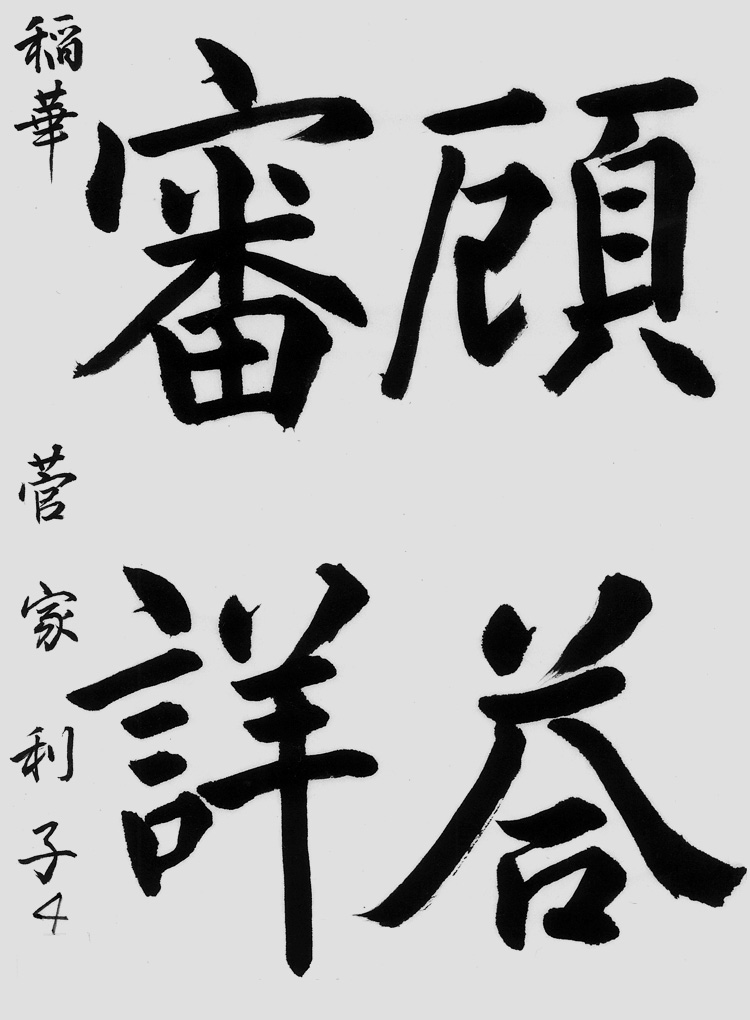 顧答
審詳
稲華 菅家利子4